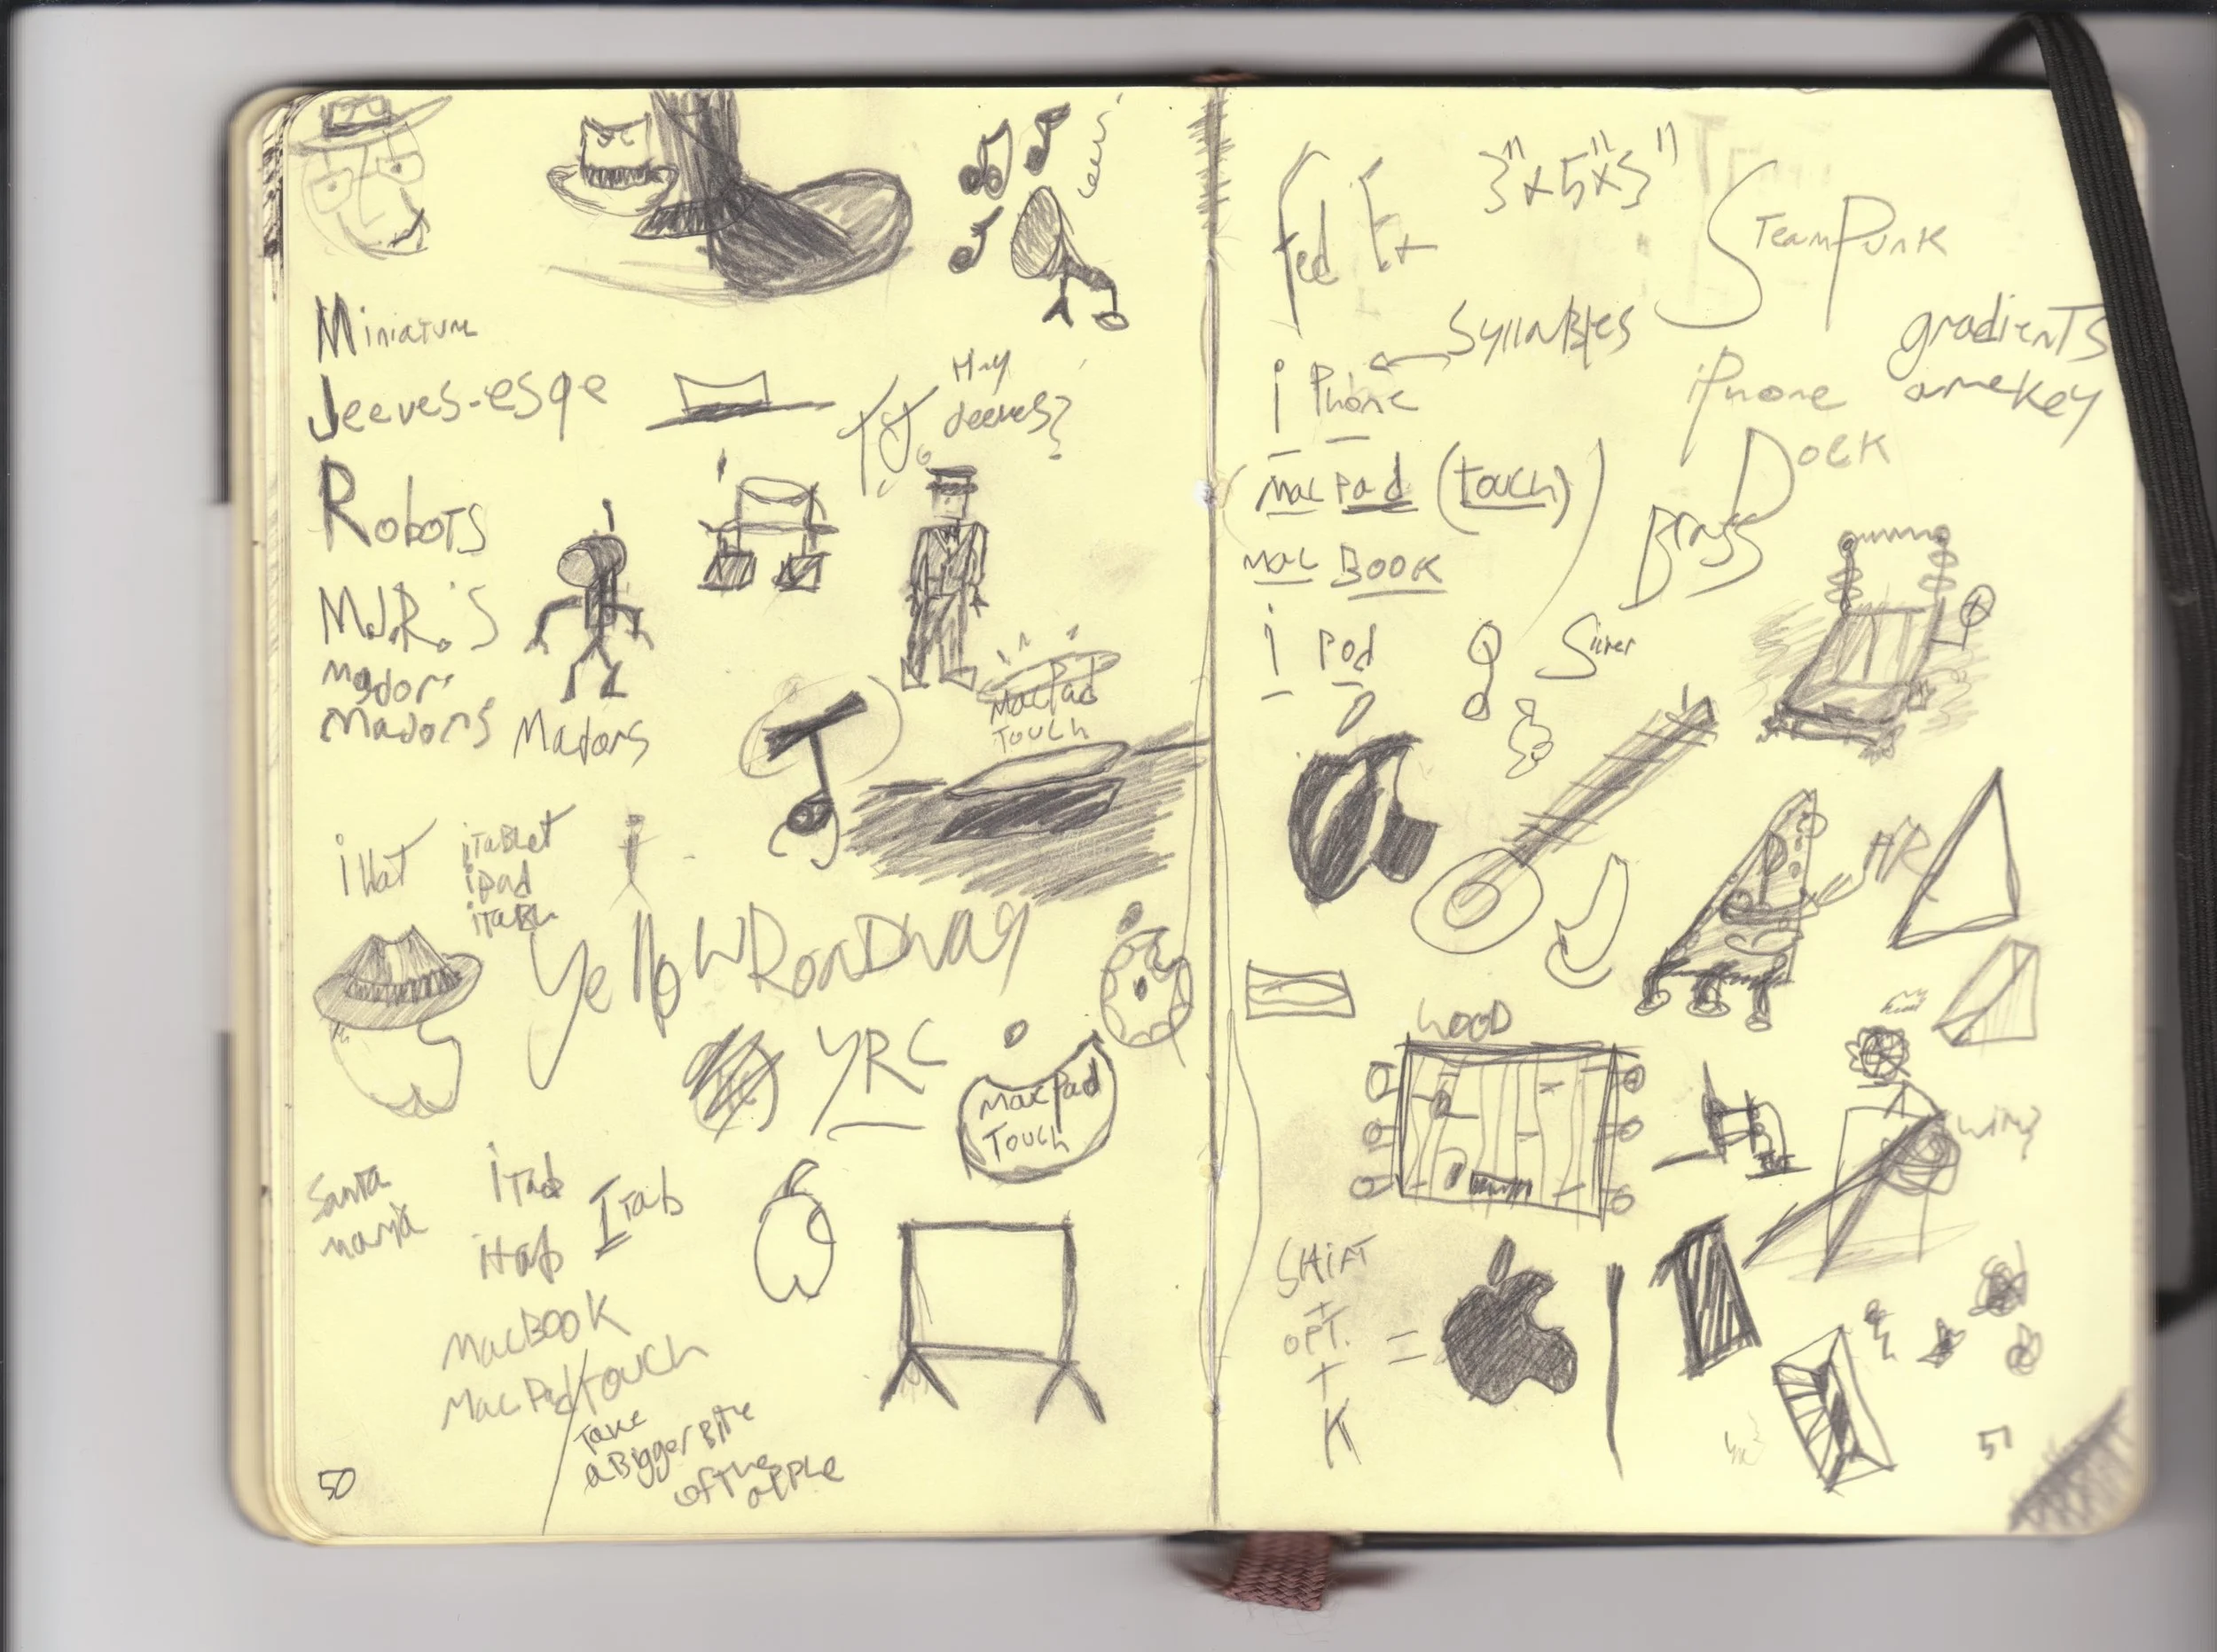 Jeeves-esqe
Hey
Jeeves?
Robots
M.J.R.'s
Madors
Madors
MacPad
Touch
iHat
iTablet
ipad
Yellow Roadway
YRC
MacPad
Touch
Santa
maria
iTab
ITab
iTab
MacBook
MacPad/touch
Take
a Bigger Bite
of the
apple
50
Fed Ex
3"x5"x3"
SteamPunk
Syllables
gradients
are key
i Phone
iPhone
Dock
(mac Pad (touch))
Brass
mac Book
i Pod
HR
Wood
Shift
+
OPT.
+
K
=
51